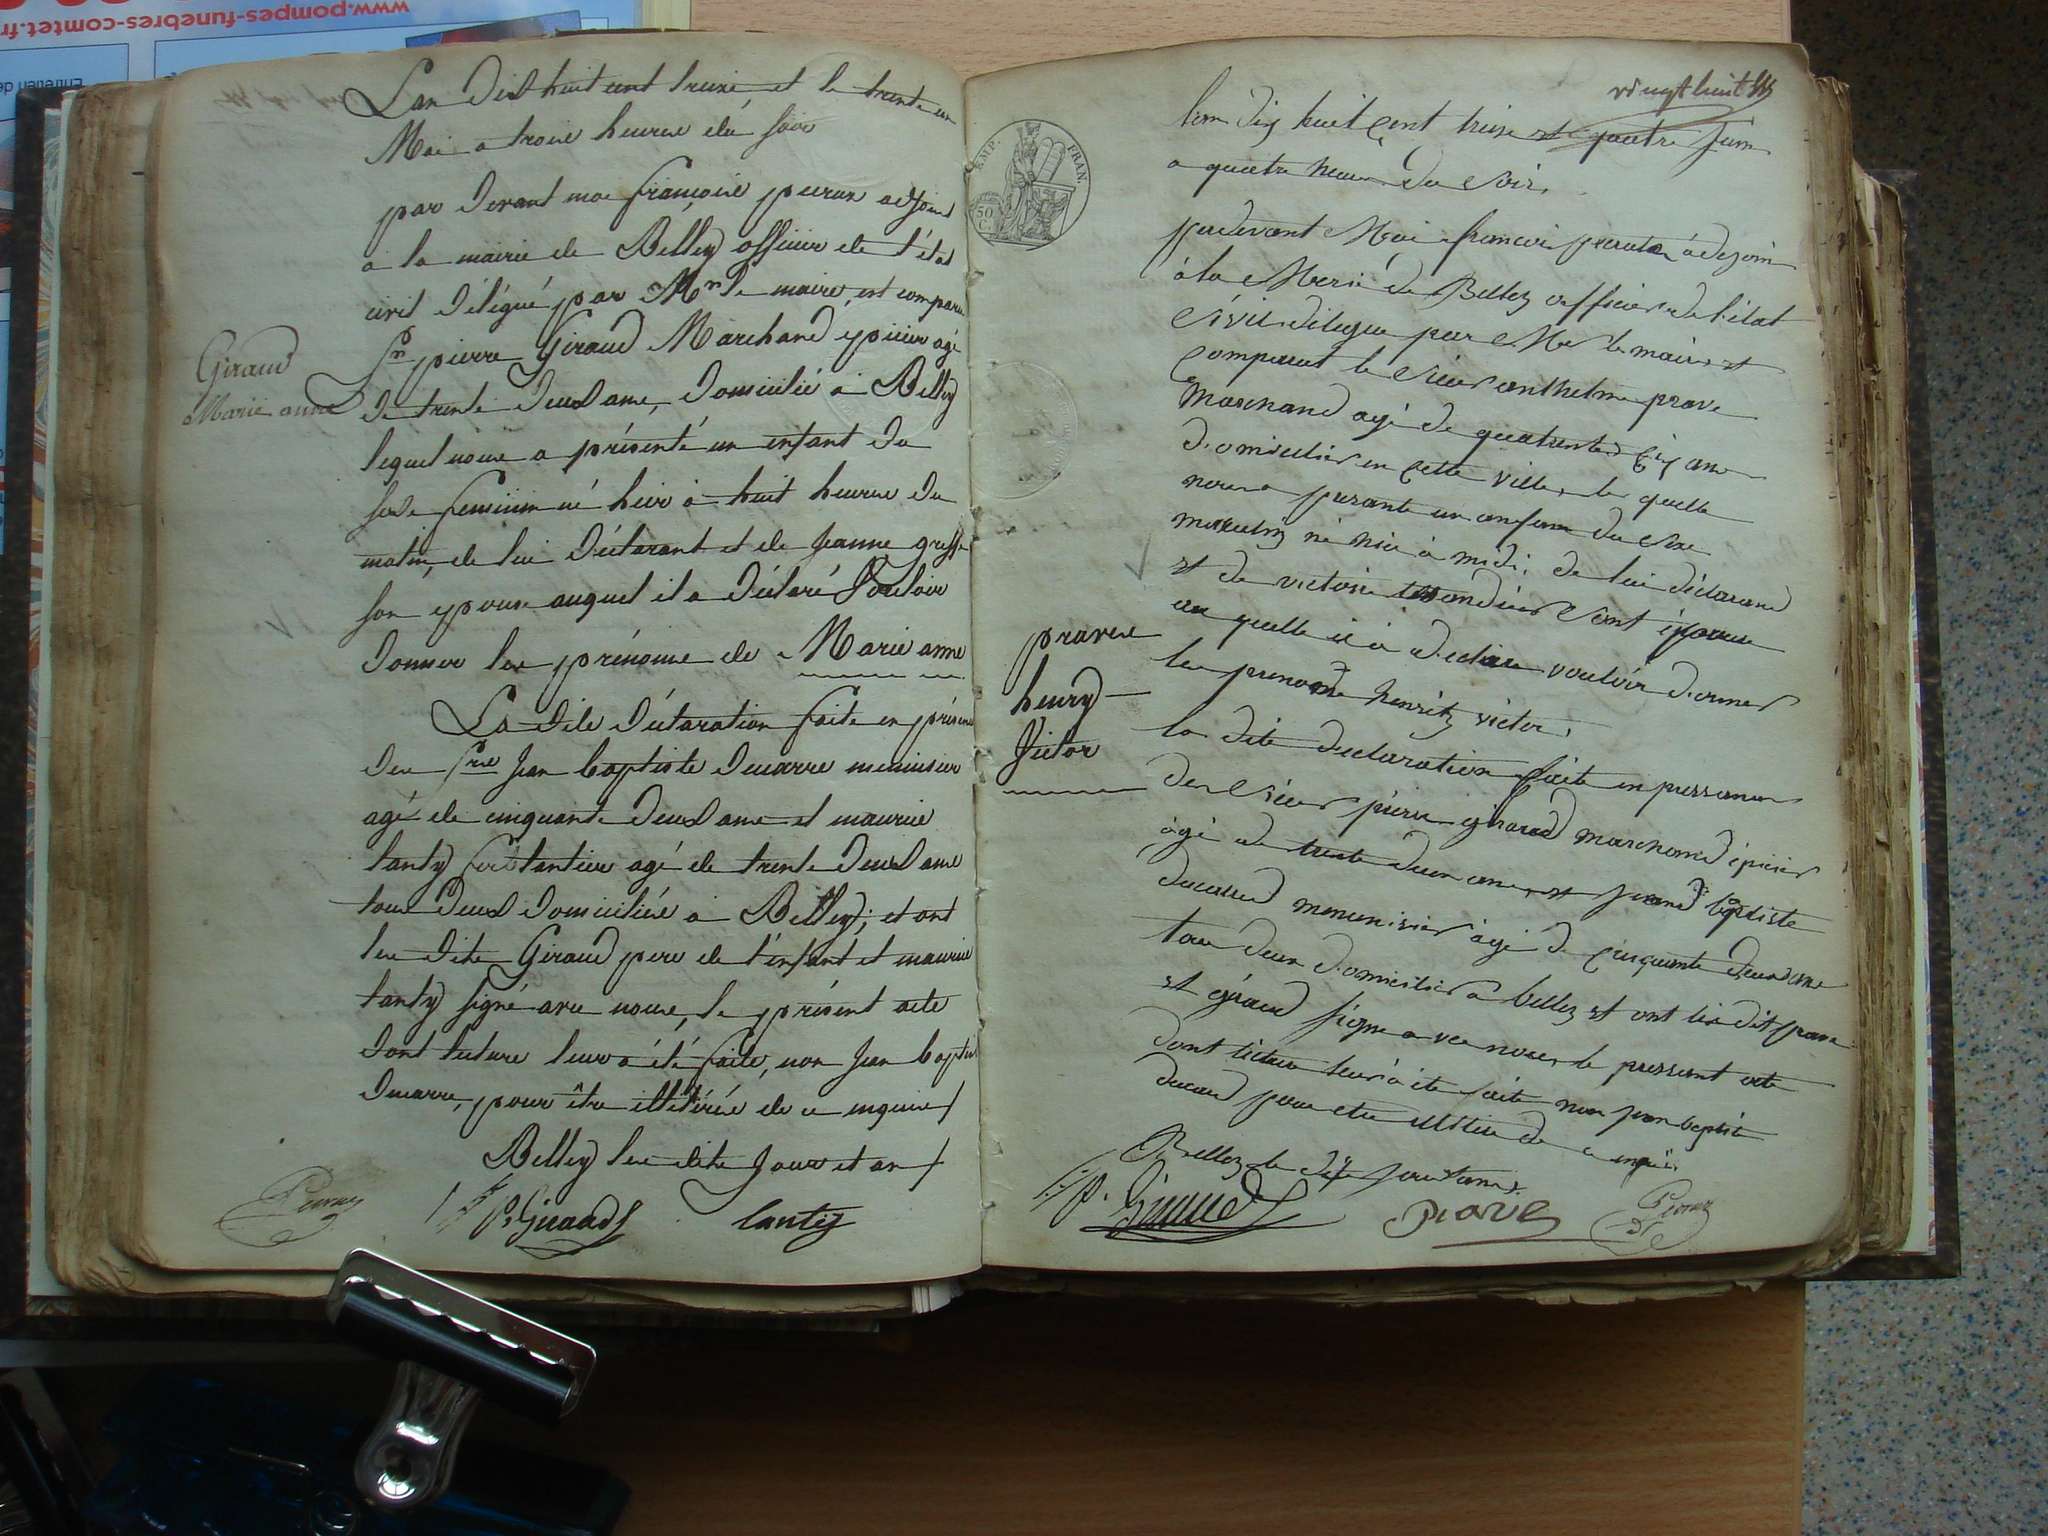 www.pompes-funebres-comtet.fr
Entretien de
L'an dix huit cent treize et le trente un
Mai a trois heures du soir
par devant moi françois peuran adjoint
a la mairie de Belley officier de l'état
civil délégué par Mr le maire, est comparu
Sr pierre Giraud Marchand épicier agé
de trente deux ans, domicilié à Belley
lequel nous a présenté un enfant du
sexe feminin né hier à huit heures du
matin, de lui déclarant et de Jeanne
son epouse auquel il a déclaré Vouloir
donner les prénoms de Marie anne
Giraud
Marie anne
La dite déclaration faite en présence
des Srs Jean baptiste ducarre menuisier
agé de cinquante deux ans et maurice
tanty agé de trente deux ans
tous deux domiciliés à Belley; et ont
les dits Giraud pere de l'enfant et maurice
tanty signé avec nous, le présent acte
dont lecture leur a été faite, non Jean baptiste
ducarre, pour être illétéré de ce enquis
Belley les dits Jour et an
P. Giraud
tanty
vingt huit
EMP. FRAN.
50 C.
lan dix huit cent treise et quatre juin
a quatre heures du soir,
pardevant Moi francois adejoin
à la Merie de Belley officier de l'état
Civil delegue par Mer le maire et
comparut le sieur anthelme prave
Marchand agé de quarante Cinq ans
domicilier en cette ville, le quelle
nous a presante un anfant du sexe
masculin né hier à midi; de lui déclarand
et de victoire sont épouse
au quelle il à declare vouloir donner
les prenoms henrik victor,
prave
henry
Victor
la dite declaration faite en pressance
des sieurs pierre giraud marchand épicier
agé de trente deux ans, et jean baptiste
ducarre menuisier agé de cinquante deux ans
tous deux domicilier a belley et ont les dit prave
et giraud signe avec nous le pressant acte
dont lecture leur à été faite non jean baptiste
pour etre de ce enquis
Belley le dit jour et an
P. Giraud
Prave